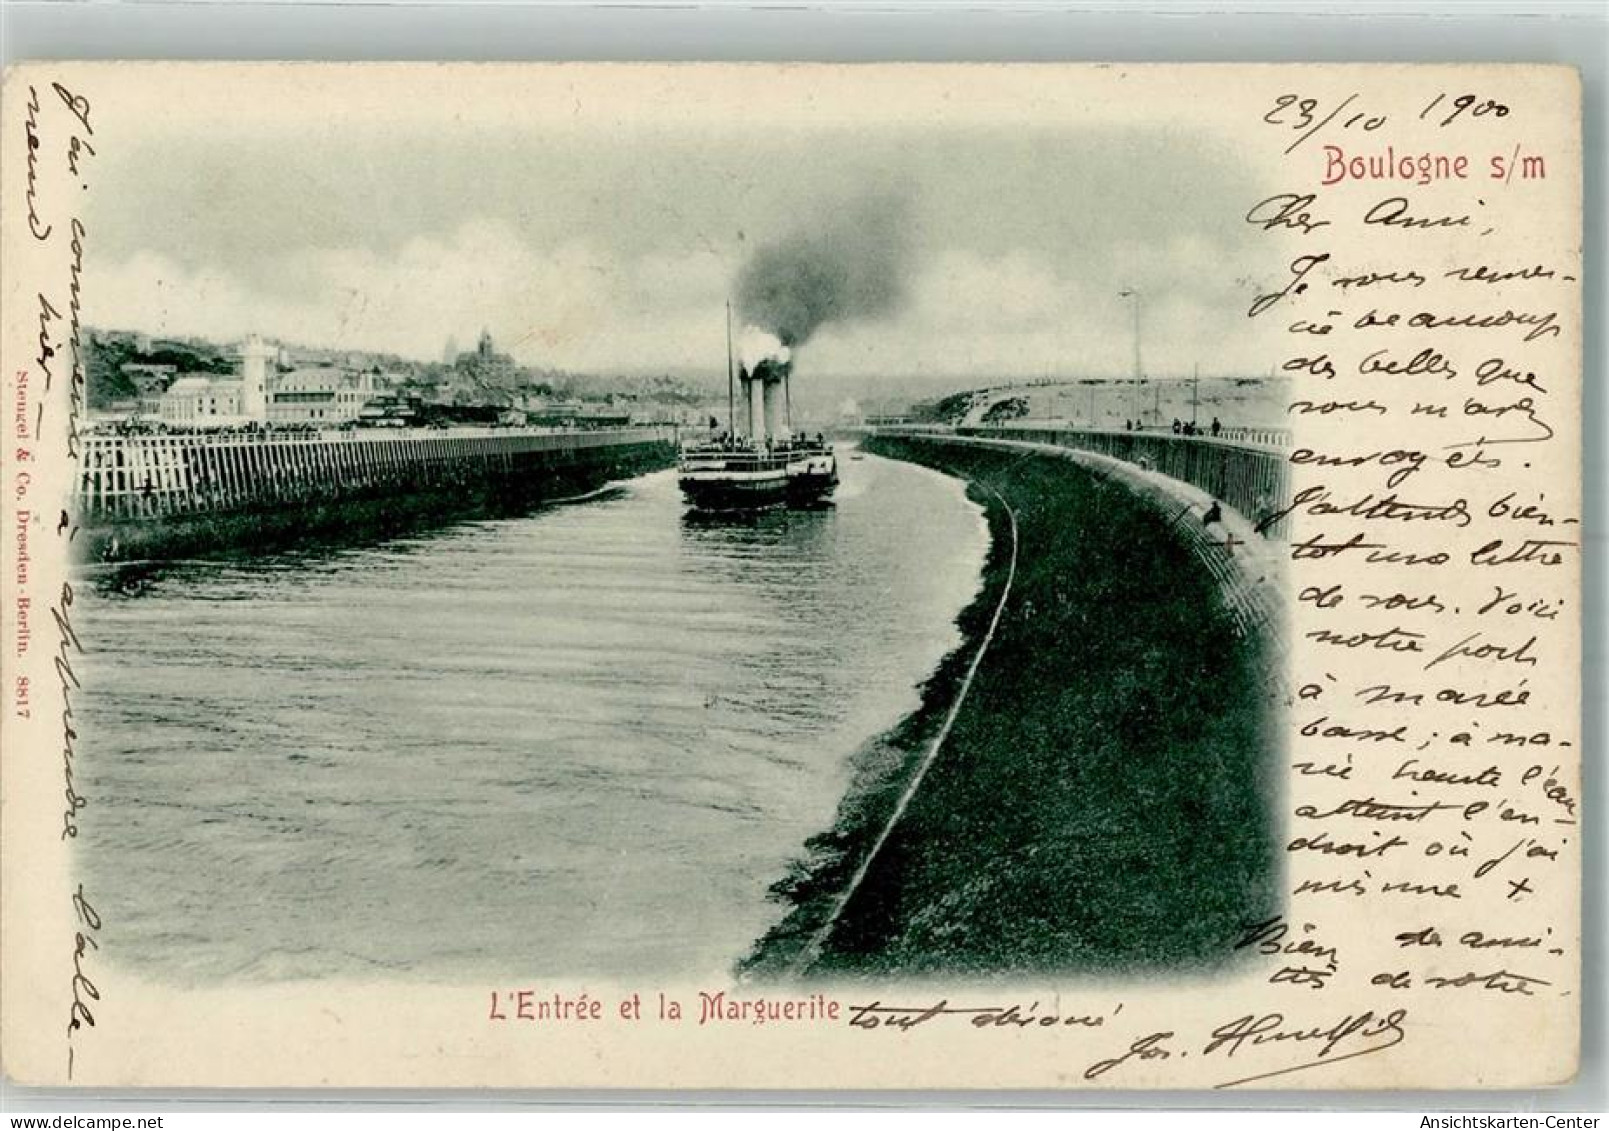 23/10 1900
Boulogne s/m
Cher Ami,
Je vous remer-
cie beaucoup
des belles que
vous m'avez
envoyés.
J'attends bien-
tot une lettre
de vous. Voici
notre port
à marée
basse ; à ma-
rée haute l'eau
atteint l'en
droit où j'ai
mis une +
Bien des ami-
tiés de votre
tout dévoué
Jos.
L'Entrée et la Marguerite
J'ai commencé à apprendre l'alle-
mand hier —
Stengel & Co. Dresden - Berlin. 8817
Ansichtskarten-Center